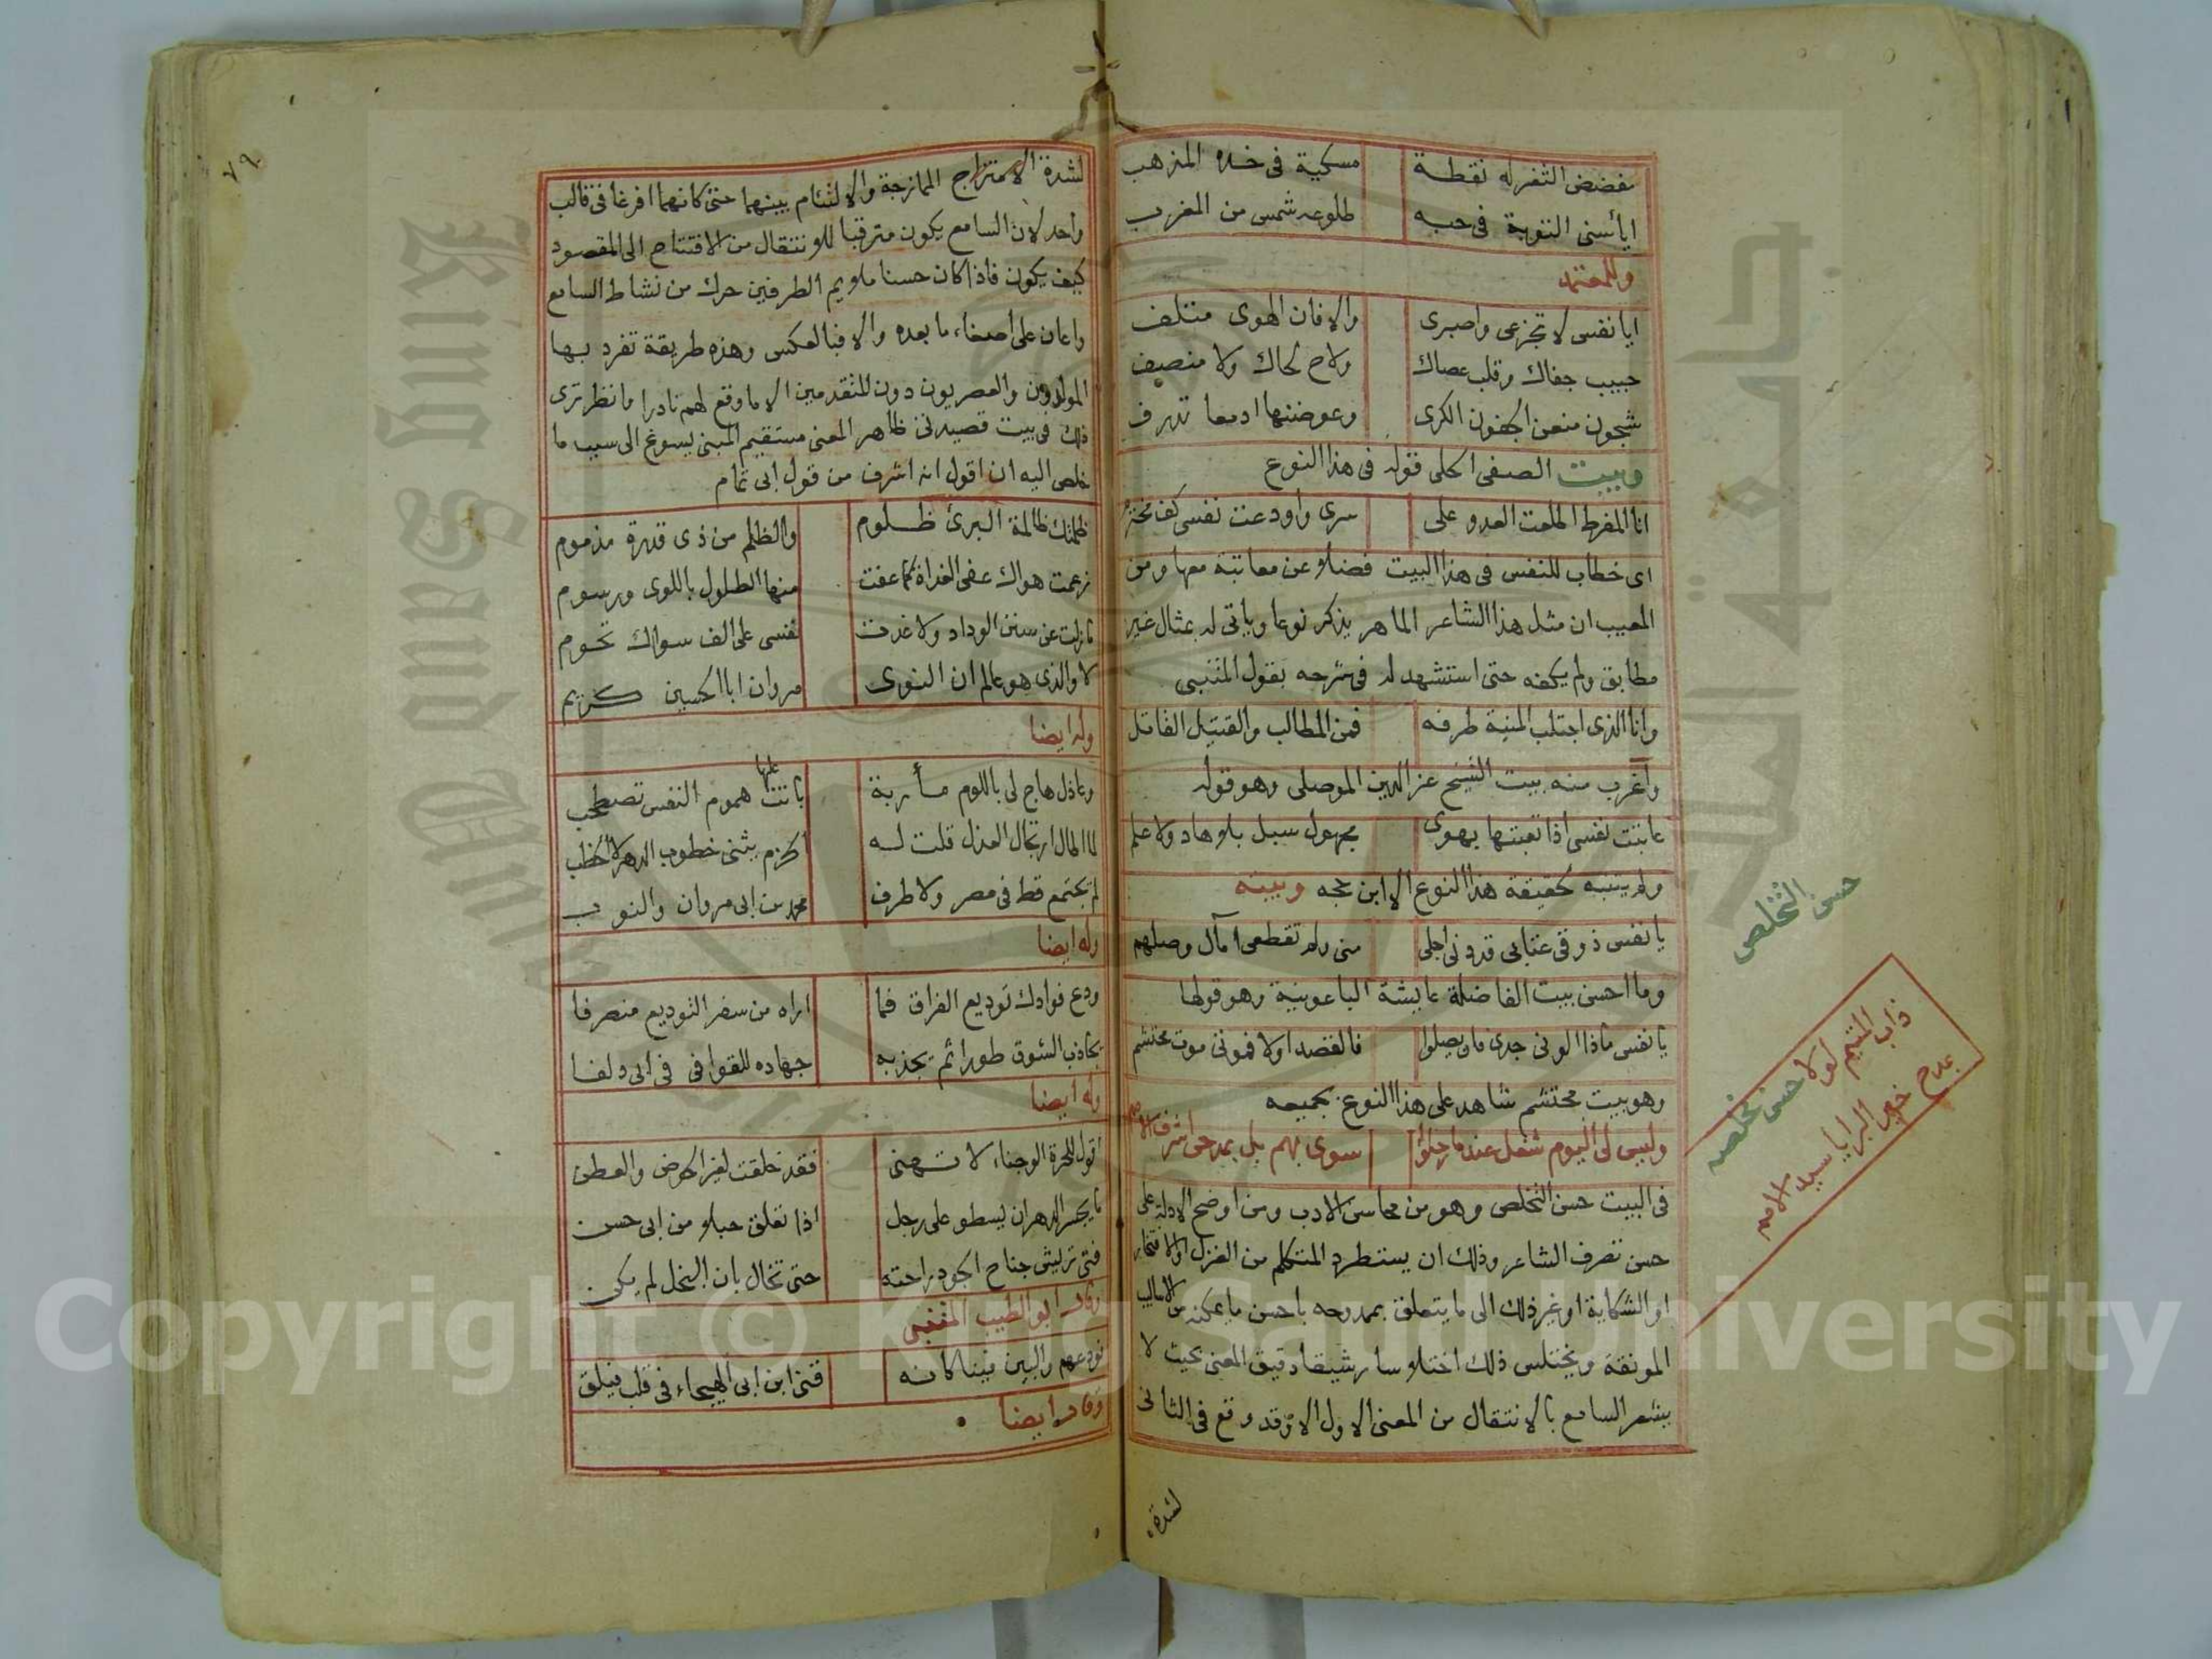 مفضض الثغر له نقطة مسكية في خده المذهب
ايأسني التوبة في حبه طلوعه شمس من المغرب
وللمعتمد
ايا نفس لا تجزعي واصبري والا فان الهوى متلف
حبيب جفاك وقلب عصاك ولاح لحاك ولا منصف
شجون منعن الجفون الكرى وعوضنها ادمعا تذرف
وبيت الصفي الحلي قوله في هذا النوع
انا المفرط اطلعت العدو على سري واودعت نفسي كف مخترم
اى خطاب للنفس في هذا البيت فضلا عن معاتبة معها ومن
العجيب ان مثل هذا الشاعر الماهر يذكر نوعا وياتي له بمثال غير
مطابق ولم يكفه حتى استشهد له في شرحه بقول المتنبي
وانا الذي اجتلب المنية طرفه فمن المطالب والقتيل القاتل
وأغرب منه بيت الشيخ عز الدين الموصلي وهو قوله
عاتبت نفسي اذا تعبتها بهوى مجهول سبل بلا هاد ولا علم
ولم يتنبه لحقيقة هذا النوع الا ابن حجه وبيته
يا نفس ذوقي عتابي قد دنى اجلي مني ولم تقطعي آمال وصلهم
وما احسن بيت الفاضلة عايشة الباعونية وهو قولها
يا نفس ماذا الونى جدي فان يصلوا فالقصد اولا فموتي موت محتشم
وهو بيت محتشم شاهد على هذا النوع بجميعه
وليس لى اليوم شغل عندما رحلوا سوى بهم بل بمدحى اشرف الامم
في البيت حسن التخلص وهو من محاسن الادب ومن اوضح الادلة على
حسن تصرف الشاعر وذلك ان يستطرد المتكلم من الغزل او الافتخار
او الشكاية او غير ذلك الى ما يتعلق بممدوحه باحسن ما يمكنه من الاساليب
المونقة ويختلس ذلك اختلاسا رشيقا دقيق المعنى بحيث لا
يشعر السامع بالانتقال من المعنى الاول الا وقد وقع في الثاني
لشدة
حسن التخلص
ذاب المتيم لولا حسن تخلصه
بمدح خير البرايا سيد الامم
٧٩
لشدة الامتزاج الممازجة والالتئام بينهما حتى كانهما افرغا في قالب
واحد لان السامع يكون مترقبا للانتقال من الافتتاح الى المقصود
كيف يكون فاذا كان حسنا ملايم الطرفين حرك من نشاط السامع
واعان على اصغاء ما بعده والا فبالعكس وهذه طريقة تفرد بها
المولدون والعصريون دون المتقدمين الا ما وقع لهم نادرا فانظر ترى
ذلك في بيت قصيدتي ظاهر المعنى مستقيم المبنى يسوغ الى سبب ما
خلص اليه ان اقول انه اشرف من قول ابي تمام
ظلمتك ظالمة البرئ ظلوم والظلم من ذي قدرة مذموم
زعمت هواك عفى الغداة كما عفت منها الطلول باللوى ورسوم
ما زلت عن سنن الوداد ولا غدت نفسي على الف سواك تحوم
لا والذي هو عالم ان النوى مروان ابا الحسين كريم
وله ايضا
وعاذل هاج لي باللوم مأربة باتت عليها هموم النفس تصطخب
لما اطال ارتجال العذل قلت له الحزم يثني خطوب الدهر لا الخطب
لم يجتمع قط في مصر ولا طرف محمد بن ابي مروان والنوب
وله ايضا
ودع فوادك توديع الفراق فما اراه من سفر التوديع منصرفا
يجاذب الشوق طورا ثم يجذبه جهاده للقوافي في ابي دلفا
وله ايضا
اقول للحرة الوجناء لا تهني فقد خلقت لغير الحوض والعطن
ما يحسن الدهر ان يسطو على رجل اذا تعلق حبلا من ابي حسن
فتى تريش جناح الجود راحته حتى تخال بان البخل لم يكن
وقال ابو الطيب المتنبي
نودعهم والبين فينا كانه قنى ابن ابي الهيجاء في قلب فيلق
وقال ايضا
جامعة الملك سعود
King Saud University
Copyright © King Saud University